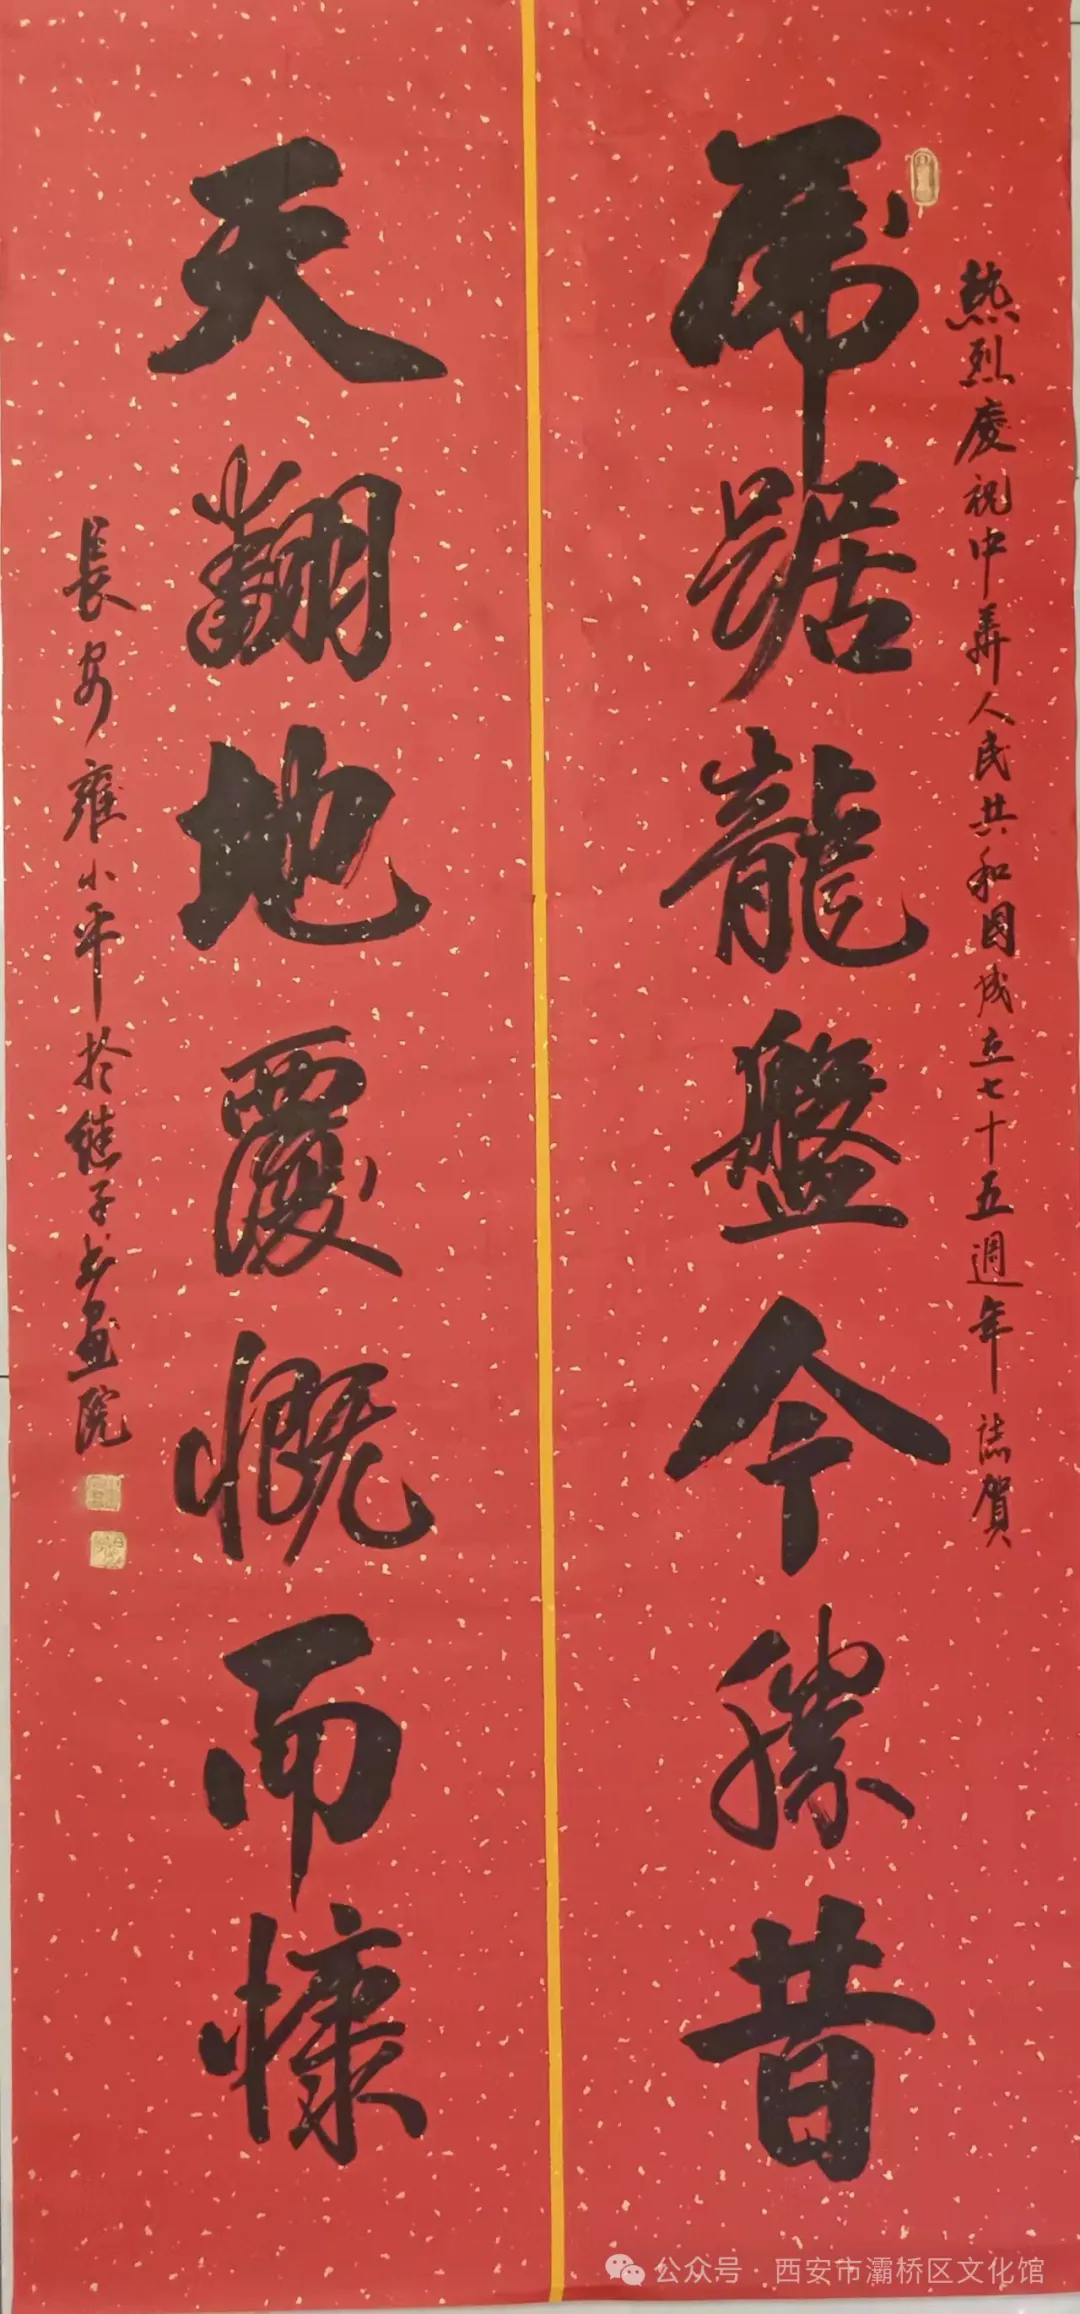 熱烈慶祝中華人民共和国成立七十五週年誌賀
虎踞龍盤今勝昔
天翻地覆慨而慷
長安雍小平於继子书画院
公众号 · 西安市灞桥区文化馆